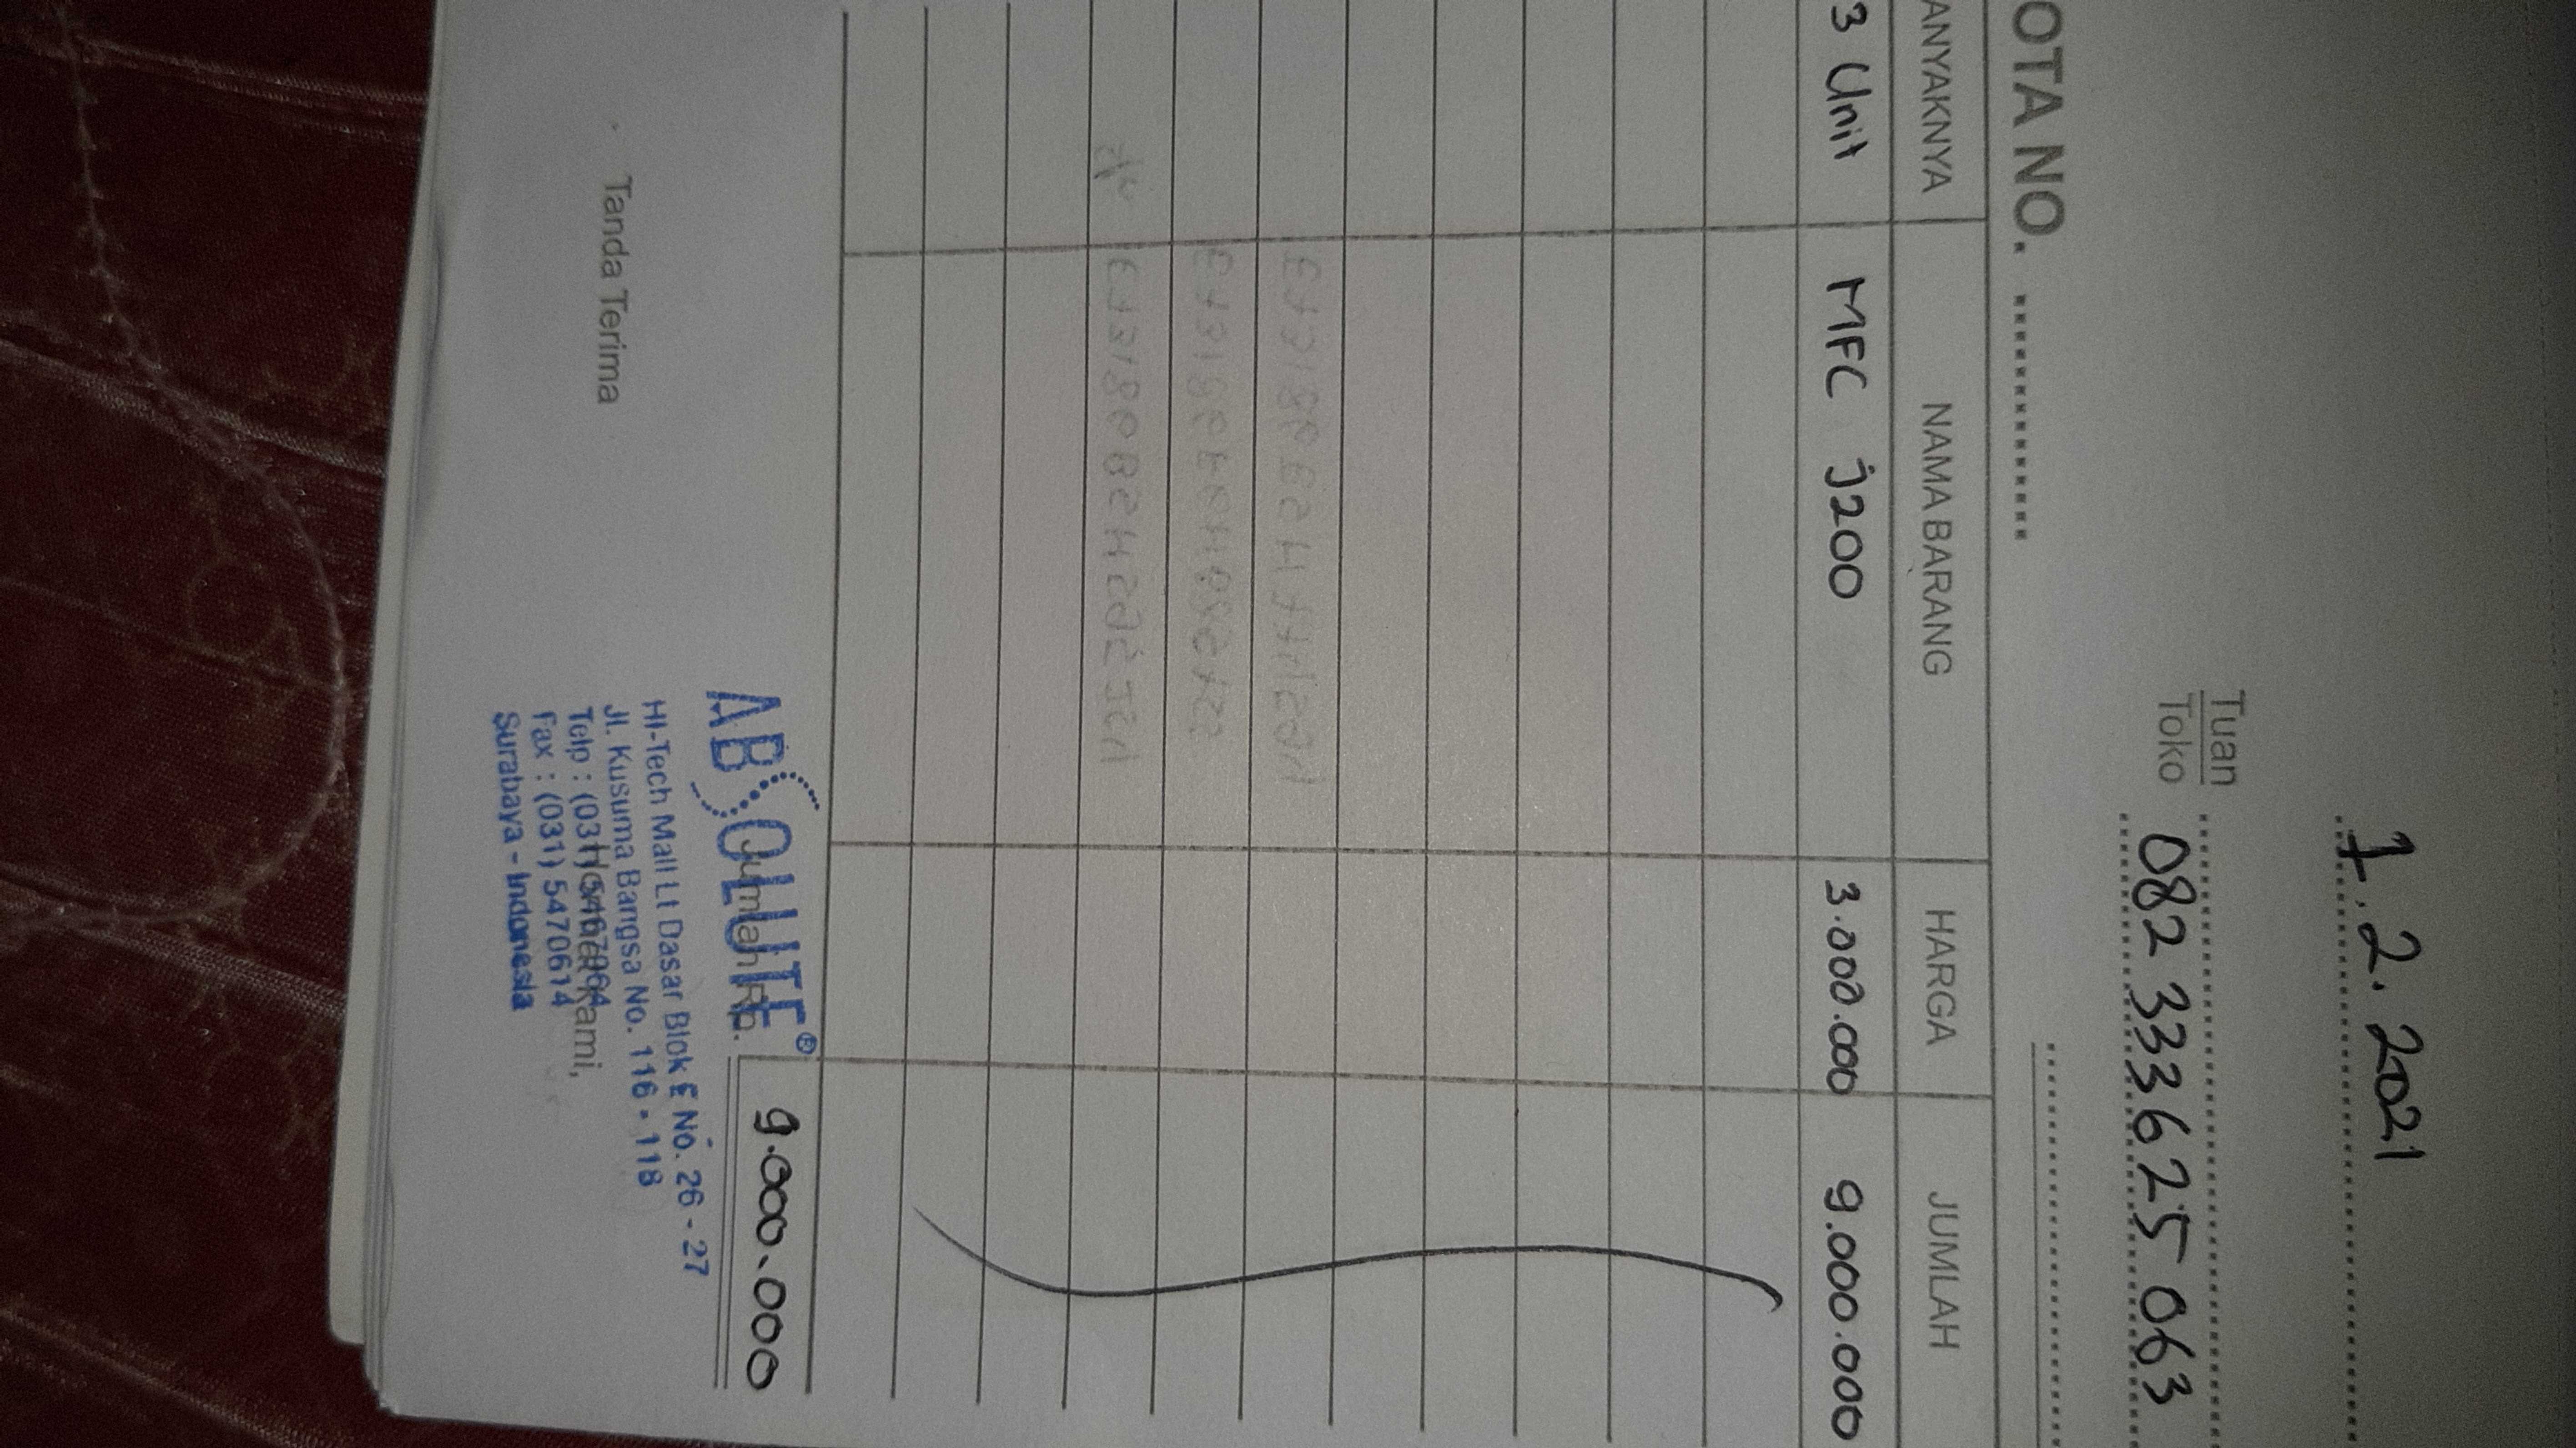 1.2.2021
Tuan
Toko 082 333 625 063
OTA NO.
ANYAKNYA NAMA BARANG HARGA JUMLAH
3 Unit MFC J200 3.000.000 9.000.000
Jumlah Rp. 9.000.000
ABSOLUTE®
HI-Tech Mall Lt Dasar Blok E No. 26 - 27
Jl. Kusuma Bangsa No. 116 - 118
Tanda Terima
Telp : (031) Hormat Kami,
Fax : (031) 5470614
Surabaya - Indonesia